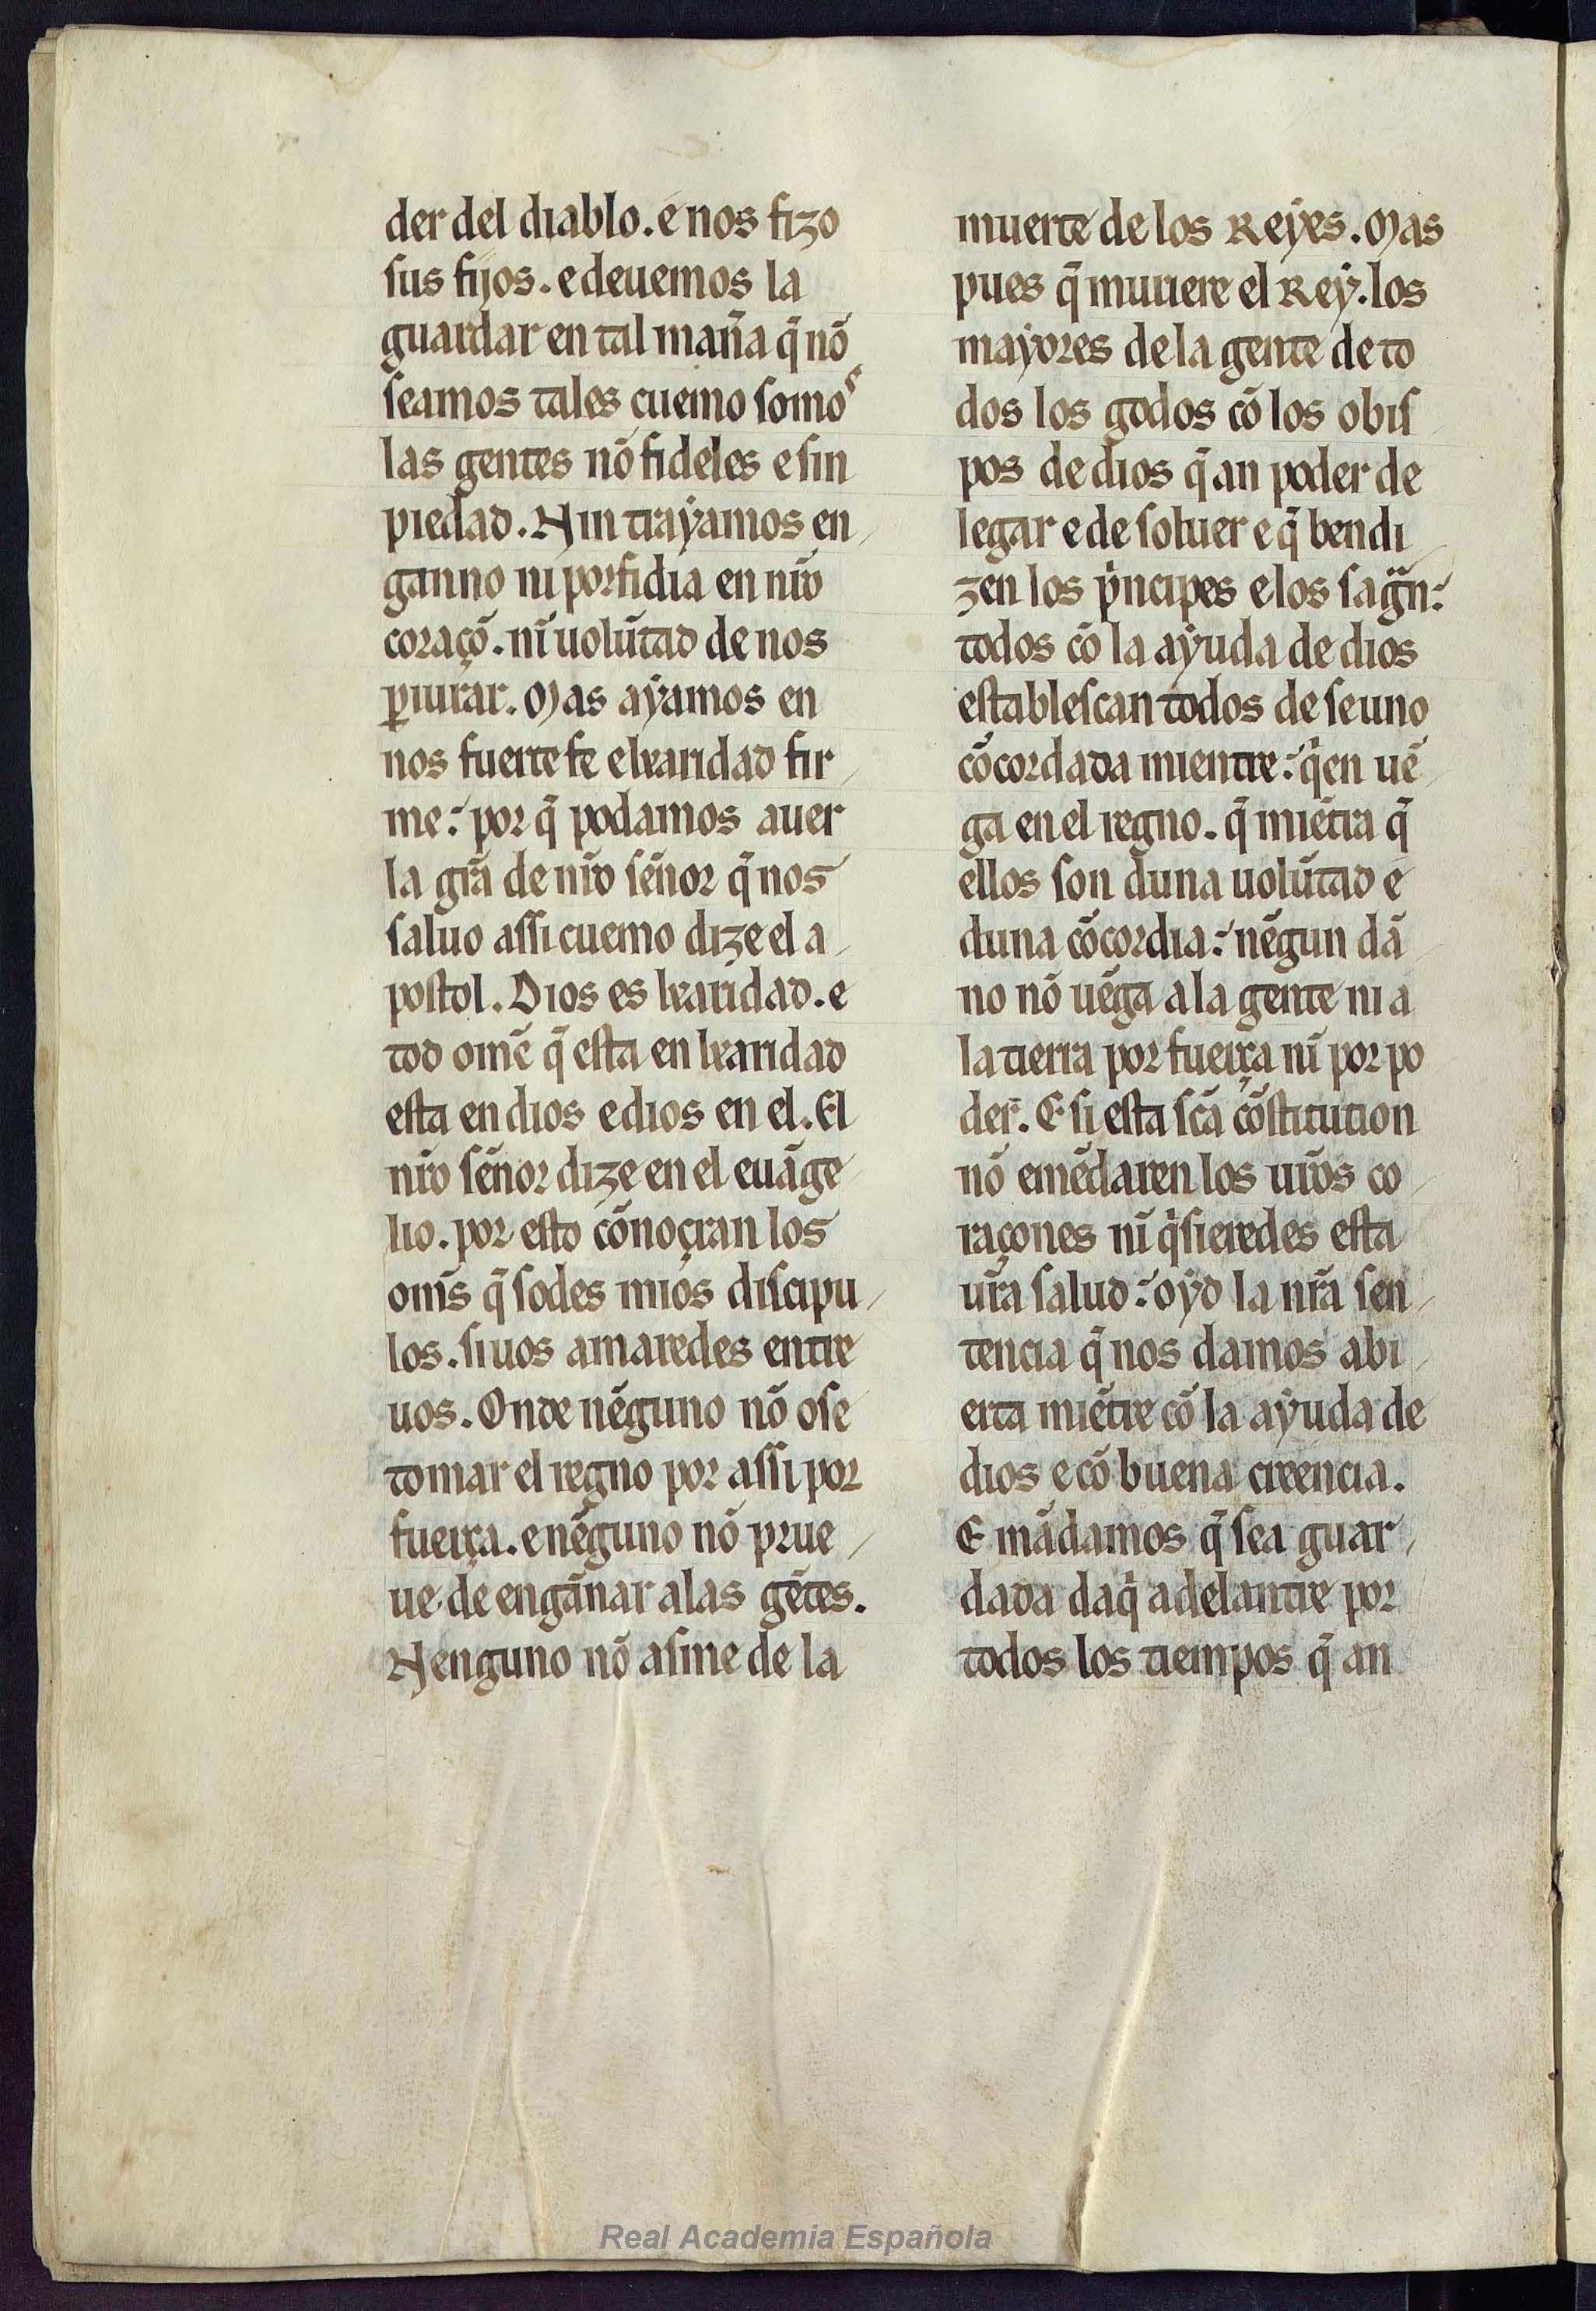 der del diablo. e nos fizo
sus fijos. e deuemos la
guardar en tal mañа q̃ nõ
seamos tales cuemo somos
las gentes nõ fideles e sin
piedad. Nin trayamos en
ganno ni porfidia en nr̃o
coraçõ. nĩ uolũtad de nos
ꝑiurar. Mas ayamos en
nos fuerte fe e karidad fir
me: por q̃ podamos auer
la gr̃a de nr̃o señor q̃ nos
saluo assi cuemo dize el a
postol. Dios es karidad. e
tod omẽ q̃ esta en karidad
esta en dios e dios en el. El
nr̃o señor dize en el euãge
lio. por esto cõnoçran los
oms̃ q̃ sodes mios discipu
los. si uos amaredes entre
uos. Onde nẽguno nõ ose
tomar el regno por assi por
fuerça. e nẽguno nõ prue
ue de engãnar a las gẽtes.
Nenguno nõ asme de la
muerte de los Reyes. Mas
pues q̃ muriere el Rey. los
mayores de la gente de to
dos los godos cõ los obis
pos de dios q̃ an poder de
legar e de soluer e q̃ bendi
zen los p̃ncipes e los sagñ:
todos cõ la ayuda de dios
establescan todos de so uno
cõcordada mientre: q̃en uẽ
ga en el regno. q̃ miẽtra q̃
ellos son duna uolũtad e
duna cõcordia: nẽgun dã
no nõ uẽga a la gente ni a
la tierra por fuerça nĩ por po
der. E si esta sc̃a cõstitution
nõ emẽdaren los ur̃os co
raçones nĩ q̃sieredes esta
ur̃a salud: oyd la nr̃a sen
tencia q̃ nos damos abi
erta miẽtre cõ la ayuda de
dios e cõ buena creencia.
E mãdamos q̃ sea guar
dada daq̃ adelantre por
todos los tiempos q̃ an
Real Academia Española